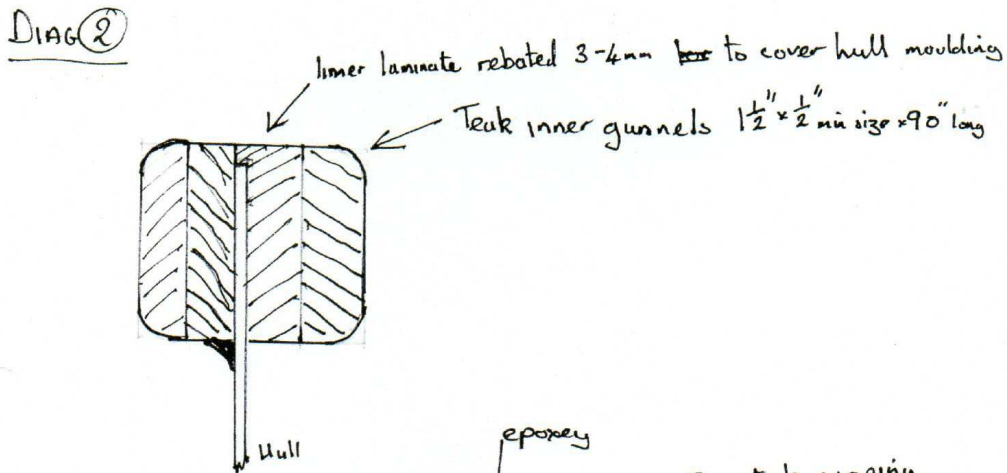 DIAG 2
Inner laminate rebated 3-4mm to cover hull moulding
Teak inner gunnels 1 1/2" x 1/2" min size x 90" long
Hull
epoxey